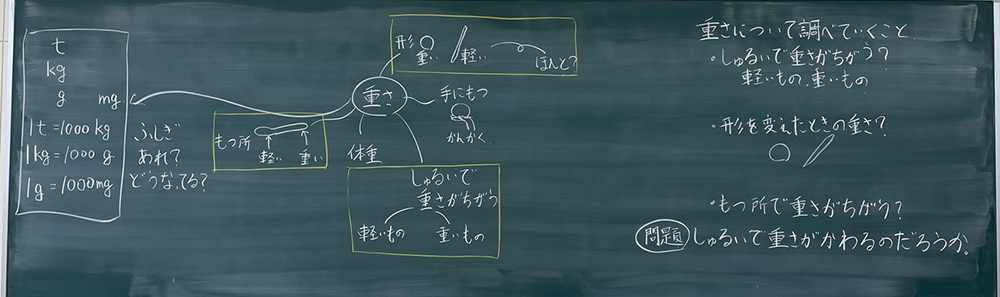 t
kg
g mg
1t=1000kg
1kg=1000g
1g=1000mg
ふしぎ
あれ?
どうなってる?
重さ
形
重い 軽い ほんと?
手にもつ
かんかく
もつ所
軽い 重い
体重
しゅるいで
重さがちがう
軽いもの 重いもの
重さについて調べていくこと
・しゅるいで重さがちがう?
軽いもの、重いもの
・形を変えたときの重さ?
・もつ所で重さがちがう?
問題 しゅるいで重さがかわるのだろうか。